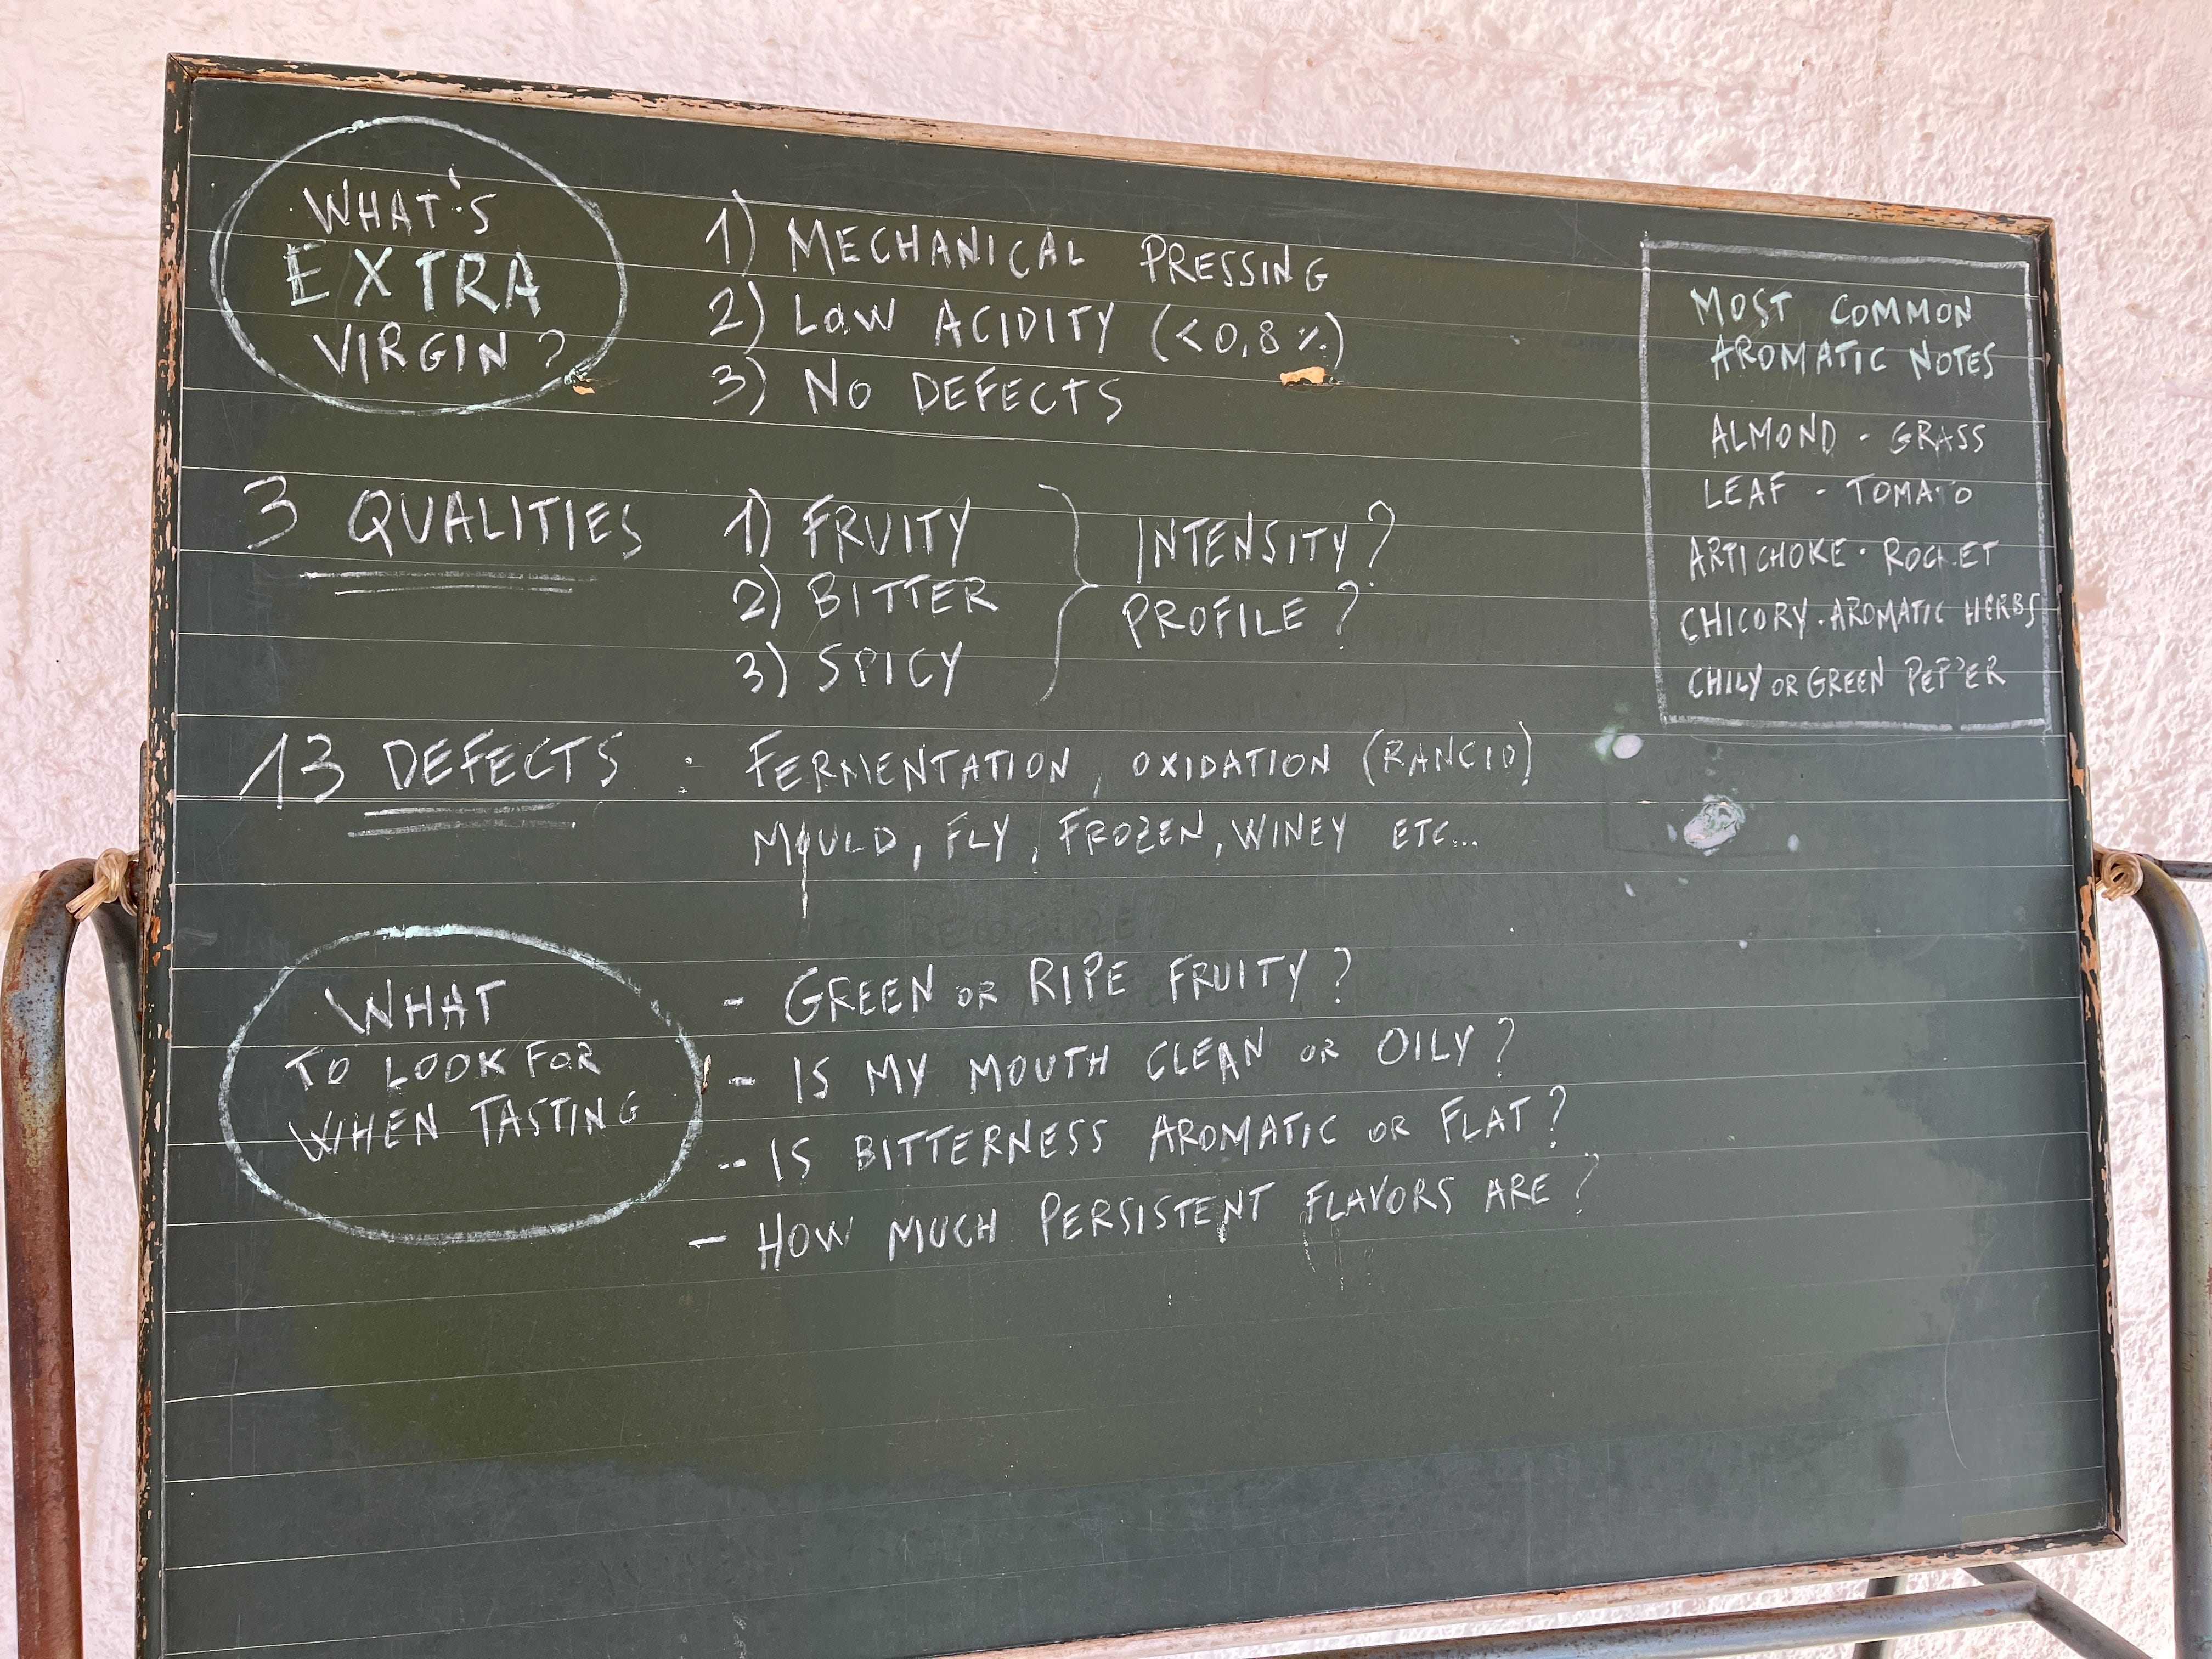 WHAT'S
EXTRA
VIRGIN?
1) MECHANICAL PRESSING
2) LOW ACIDITY (<0,8%)
3) NO DEFECTS
MOST COMMON
AROMATIC NOTES
ALMOND - GRASS
LEAF - TOMATO
ARTICHOKE - ROCKET
CHICORY - AROMATIC HERBS
CHILY OR GREEN PEPPER
3 QUALITIES
1) FRUITY
2) BITTER
3) SPICY
INTENSITY?
PROFILE?
13 DEFECTS : FERMENTATION, OXIDATION (RANCID)
MOULD, FLY, FROZEN, WINEY ETC...
WHAT
TO LOOK FOR
WHEN TASTING
- GREEN OR RIPE FRUITY?
- IS MY MOUTH CLEAN OR OILY?
- IS BITTERNESS AROMATIC OR FLAT?
- HOW MUCH PERSISTENT FLAVORS ARE?